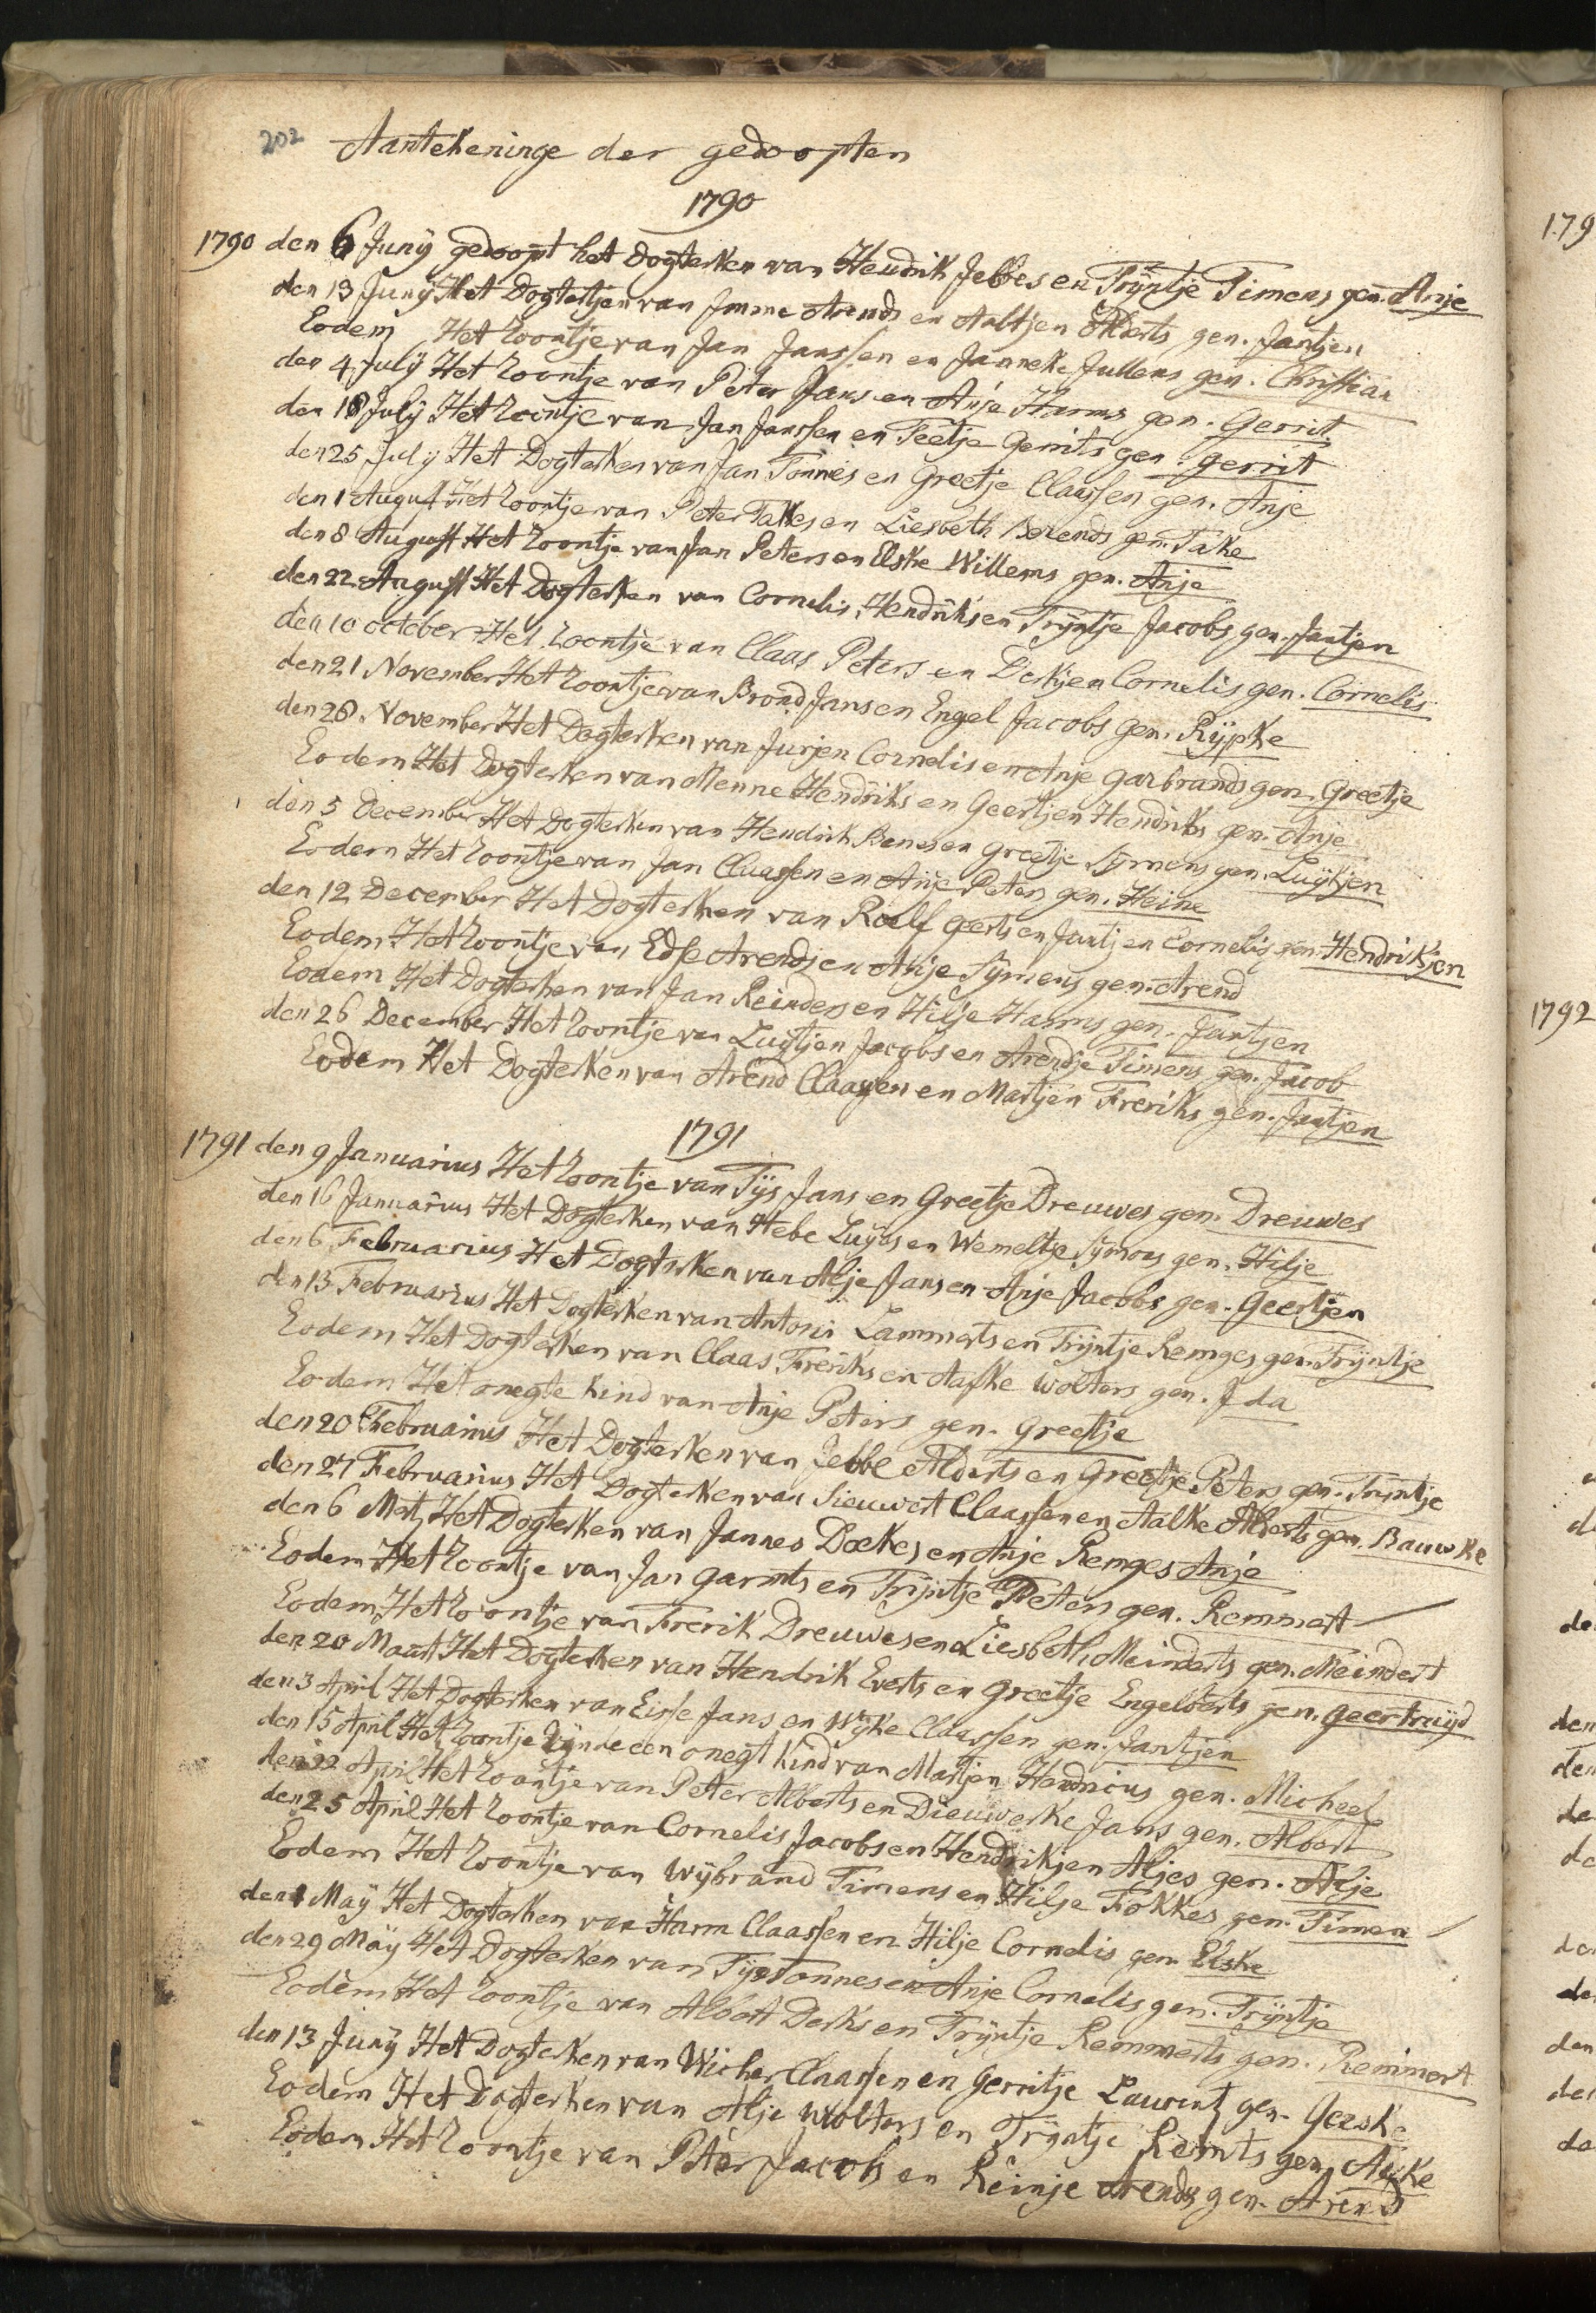 202 Aantekeninge der gedoopten
1790
1790 den 6 Junÿ gedoopt het Dogterken van Hendrik Jebbes en Trÿntje Timens gen. Anje
den 13 Junÿ Het Dogtertjen van Imme Arends en Aaltjen Alderts gen. Jantjen
Eodem Het Zoontje van Jan Janssen en Janneke Jullens gen. Christiaan
den 4 Julÿ Het Zoontje van Peter Jans en Anje Harms gen. Gerrit
den 18 Julÿ Het Zoontje van Jan Janssen en Teetje Gerrits gen. gerrit
den 25 Julÿ Het Dogterken van Jan Tonnies en Greetje Claassen gen. Anje
den 1 August Het Zoontje van Peter Takes en Liesbeth Berends gen. Take
den 8 August Het Zoontje van Jan Peters en Elske Willems gen. Anje
den 22 August Het Dogterken van Cornelis Hendriks en Trÿntje Jacobs gen. Jantjen
den 10 october Het Zoontje van Claas Peters en Derkjen Cornelis gen. Cornelis
den 21 November Het Zoontje van Brond Jans en Engel Jacobs gen. Rÿpke
den 28 November Het Dogterken van Jurjen Cornelis en Anje Garbrands gen. Greetje
Eodem Het Dogterken van Menne Hendriks en Geertjen Hendriks gen. Anje
den 5 December Het Dogterken van Hendrik Benes en Greetje Sÿmens gen. Luÿtjen
Eodem Het Zoontje van Jan Claassen en Anje Peters gen. Heine
den 12 December Het Dogterken van Roelf Geerts en Jantjen Cornelis gen. Hendrikjen
Eodem Het Zoontje van Edse Arends en Anje Sÿmens gen. Arend
Eodem Het Dogterken van Jan Reinders en Hilje Harms gen. Jantjen
den 26 December Het Zoontje van Luÿtjen Jacobs en Arendje Timens gen. Jacob
Eodem Het Dogterken van Arend Claassen en Martjen Freriks gen. Jantjen
1791
1791 den 9 Januarius Het Zoontje van Tÿs Jans en Greetje Dreuwes gen. Dreuwes
den 16 Januarius Het Dogterken van Hebe Luÿas en Wemeltje Sÿmons gen. Hilje
den 6 Februarius Het Dogterken van Alje Jans en Anje Jacobs gen. Geertjen
den 13 Februarius Het Dogterken van Antoni Lammerts en Trÿntje Remges gen. Trÿntje
Eodem Het Dogterken van Claas Freriks en Aafke Wolters gen. Ida
Eodem Het onegte Kind van Anje Peters gen. Greetje
den 20 Februarius Het Dogterken van Jebbe Alderts en Greetje Peters gen. Trÿntje
den 27 Februarius Het Dogterken van Sieuwert Claassen en Aalke Alberts gen. Bauwke
den 6 Mertz Het Dogterken van Jannes Doekes en Anje Remges Anje
Eodem Het Zoontje van Jan Garmts en Trÿntje Peters gen. Remmert
Eodem Het Zoontje van Frerik Dreuwes en Liesbeth Meinderts gen. Meindert
den 20 Maart Het Dogterken van Hendrik Everts en Greetje Engelberts gen. Geertruÿd
den 3 April Het Dogterken van Eisse Jans en Wÿke Claassen gen. Jantjen
den 15 April Het Zoontje zÿnde een onegt Kind van Martjen Hendricus gen. Micheel
den 22 April Het Zoontje van Peter Alberts en Dieuwerke Jans gen. Albert
den 25 April Het Zoontje van Cornelis Jacobs en Hendrikjen Aljes gen. Alje
Eodem Het Zoontje van Wÿbrand Timens en Hilje Fokkes gen. Timen
den 1 Maÿ Het Dogterken van Harm Claassen en Hilje Cornelis gen. Elske
den 29 Maÿ Het Dogterken van Tÿs Tonnes en Anje Cornelis gen. Trÿntje
Eodem Het Zoontje van Albert Derks en Trÿntje Remmerts gen. Remmert
den 13 Junÿ Het Dogterken van Wicher Claassen en Gerritje Laurents gen. Geeske
Eodem Het Dogterken van Alje Wolters en Trÿntje Remts gen. Aafke
Eodem Het Zoontje van Peter Jacobs en Reinje Arends gen. Arend
179
1792